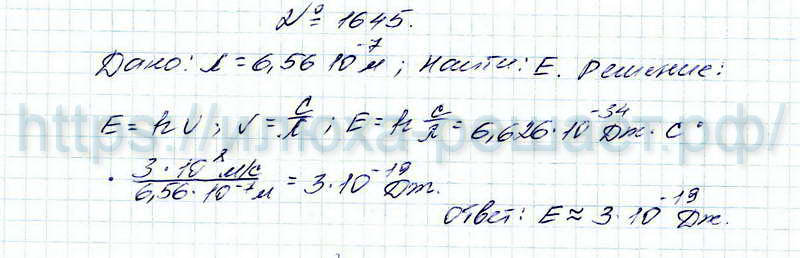 № 1645.
Дано: λ = 6,56 10⁻⁷ м; Найти: E. Решение:
E = hν; ν = c/λ; E = h c/λ = 6,626·10⁻³⁴ Дж·с·
· 3·10⁸ м/с / 6,56·10⁻⁷ м = 3·10⁻¹⁹ Дж.
Ответ: E ≈ 3·10⁻¹⁹ Дж.
https://илюха-решает.рф/